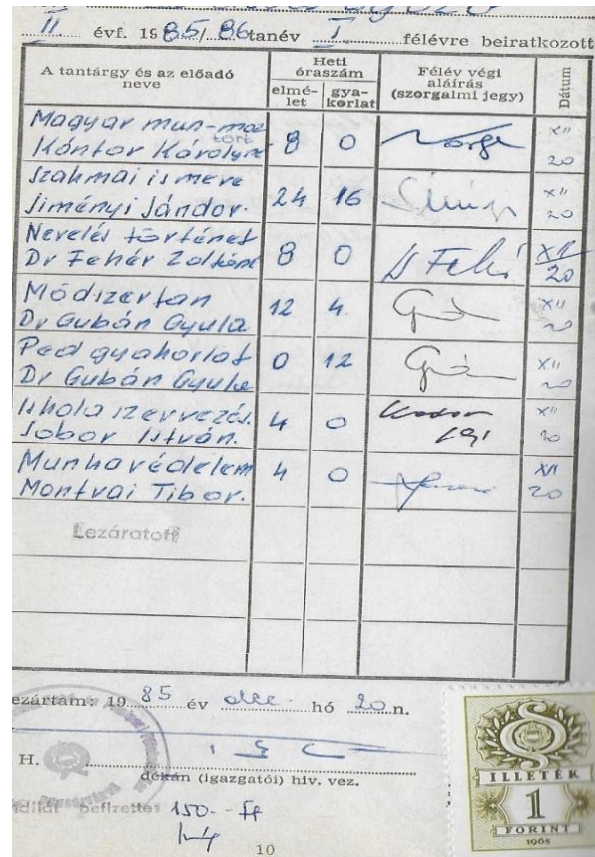 II. évf. 1985/86 tanév I. félévre beiratkozott
A tantárgy és az előadó neve
Heti óraszám
elmé-let
gya-korlat
Félév végi aláírás (szorgalmi jegy)
Dátum
Magyar mun-moz tört
Kántor Károlyné 8 0 XII 20
Szakmai ismere
Siményi Sándor. 24 16 XII 20
Nevelés történet
Dr Fehér Zoltánné 8 0 Dr Fehér XII 20
Módszertan
Dr Gubán Gyula 12 4 XII 20
Ped gyakorlat
Dr Gubán Gyula 0 12 XII 20
Iskola szervezés.
Sobor István. 4 0 XII 20
Munkavédelem
Montvai Tibor. 4 0 XII 20
Lezáratott
ezártam: 1985 év dec. hó 20 n.
P. H.
dékán (igazgatói) hiv. vez.
befizette: 150.- Ft
10
ILLETÉK
1
FORINT
1965